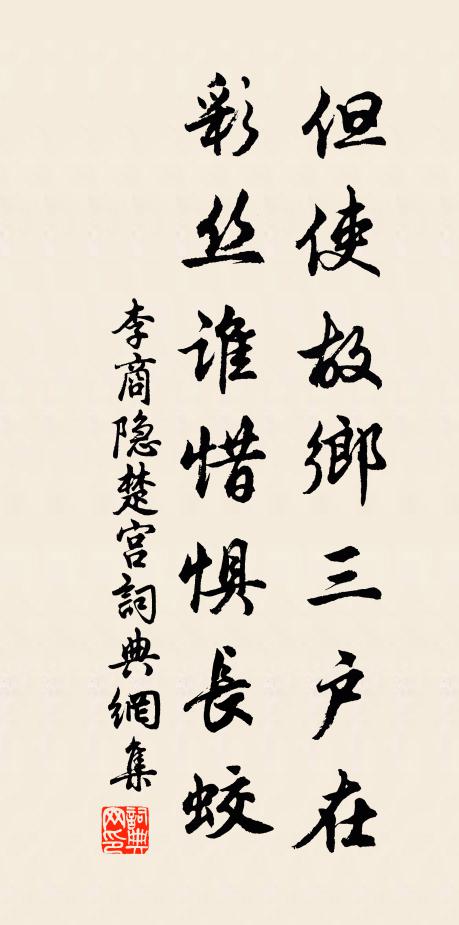 但使故鄉三户在
彩丝誰惜懼長蛟
李商隐楚宫詞典網集
詞典网印